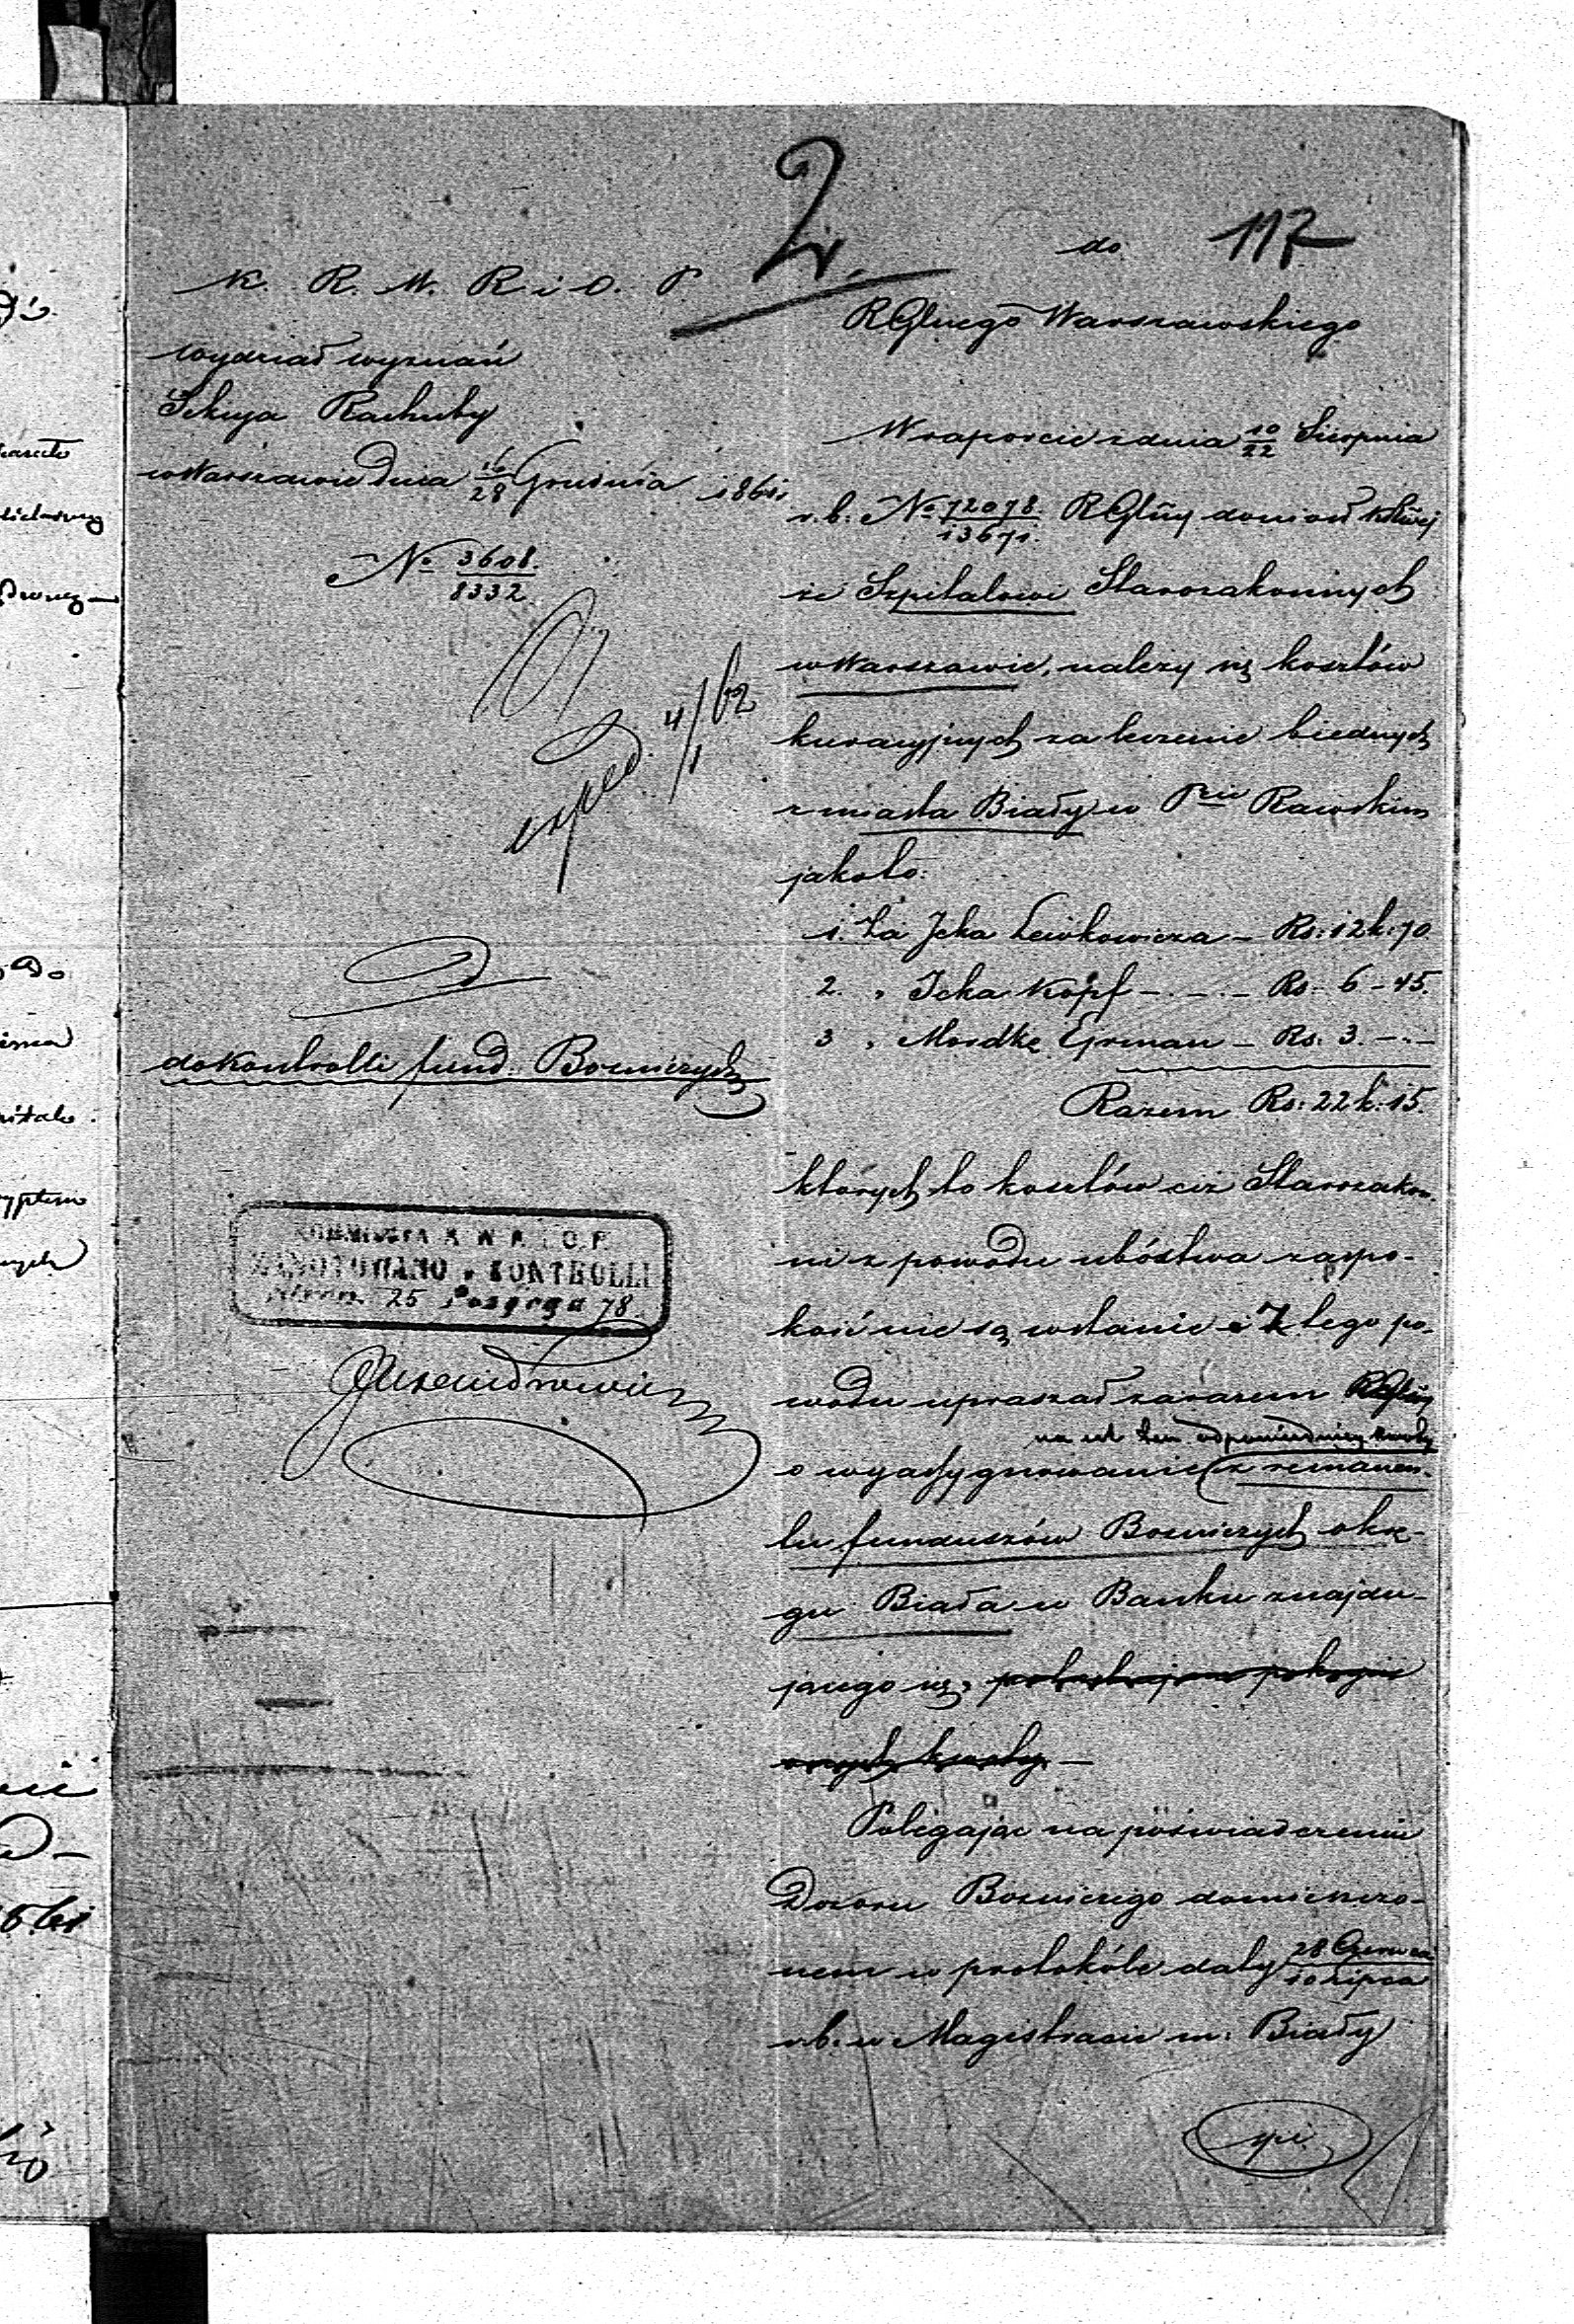 2
do 117
K. R. W. R. i O. P
Wydział wyznań
Sekcya Rachuby
w Warszawie Dnia 16/28 Grudnia 1861
No 3608./8332
exped. 4/1 62
do Kontrolli fund. Bozniczych
KOMMISSYA R. W. R. i O. P.
ZANOTOWANO w KONTROLLI
25 Pozycya 78
RGlnego Warszawskiego
W raporcie z dnia 10/22 Sierpnia
r. b. No 72078./13671. RGlny doniosł
że Szpitalowi Starozakonnych
w Warszawie, należy się kosztów
kuracyjnych za leczenie biednych
z miasta Biały w Pcie Rawskim
jakoto:
1. Za Jcka Lewkowicza – Rs: 12 k: 70
2. " Jcka Kopf – . – . – Rs. 6 – 45.
3 " Mordkę Erman – Rs. 3. – . –
Razem Rs: 22 k: 15.
których to kosztów ciż Starozakon.
ni z powodu ubóstwa zaspo-
koić nie są wstanie i Z tego po-
wodu upraszał zarazem RGlny
na cel ten odpowiedniej kwoty
o wyassygnowanie z remanen-
tu funduszów Bozniczych okrę-
gu Biała w Banku znajdu-
jącego się,
Polegając na poświadczeniu
Dozoru Bozniczego zamieszczo-
nem w protokóle daty 28 Czerwca/10 Lipca
r. b. w Magistracie m. Biały